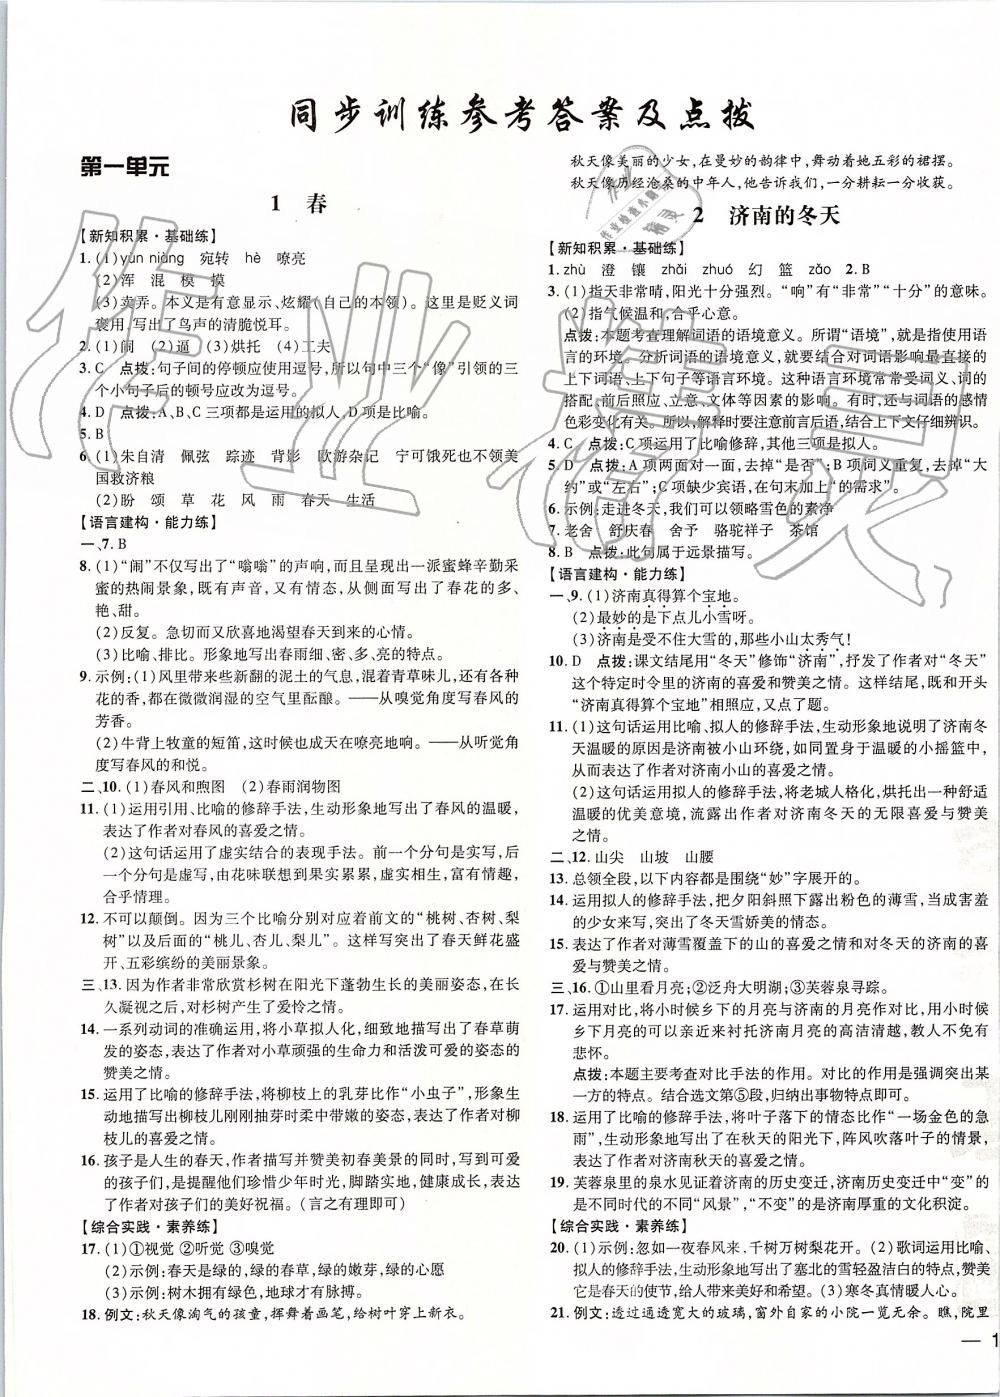 同步训练参考答案及点拨
第一单元
1 春
【新知积累·基础练】
1. (1)yùn niàng 宛转 hè 嘹亮
(2)浑 混 模 摸
(3)卖弄。本义是有意显示、炫耀(自己的本领)。这里是贬义词
褒用,写出了鸟声的清脆悦耳。
2. (1)闹 (2)逼 (3)烘托 (4)工夫
3. C 点拨:句子间的停顿应使用逗号,所以句中三个“像”引领的三
个小句子后的顿号应改为逗号。
4. D 点拨:A、B、C三项都是运用的拟人,D项是比喻。
5. B
6. (1)朱自清 佩弦 踪迹 背影 欧游杂记 宁可饿死也不领美
国救济粮
(2)盼 颂 草 花 风 雨 春天 生活
【语言建构·能力练】
一、7. B
8. (1)“闹”不仅写出了“嗡嗡”的声响,而且呈现出一派蜜蜂辛勤采
蜜的热闹景象,既有声又有情态,从侧面写出了春花的多、
艳、甜。
(2)反复。急切而又欣喜地渴望春天到来的心情。
(3)比喻、排比。形象地写出春雨多、细、密、亮的特点。
9. 示例:(1)风里带来些新翻的泥土的气息,混着青草味儿,还有各种
花的香,都在微微润湿的空气里酝酿。——从嗅觉角度写春风的
芳香。
(2)牛背上牧童的短笛,这时候也成天在嘹亮地响。——从听觉角
度写春风的和悦。
二、10. (1)春风和煦图 (2)春雨润物图
11. (1)运用引用、比喻的修辞手法,生动形象地写出了春风的温暖,
表达了作者对春风的喜爱之情。
(2)这句话运用了虚实结合的表现手法。前一个分句是实写,后
一个分句是虚写,由花味联想到果实累累,此句富有情趣,
合乎情理。
12. 不可以颠倒。因为三个比喻分别对应着前文的“桃树、杏树、梨
树”以及后面的“桃儿、杏儿、梨儿”。这样写突出了春天鲜花盛
开、五彩缤纷的美丽景象。
三、13. 因为作者非常欣赏杉树在阳光下蓬勃生长的美丽姿态,在长
久凝视之后,对杉树产生了爱怜之情。
14. 一系列动词的准确运用,将小草拟人化,细致地描写了春草萌
发的姿态,表达了作者对小草顽强的生命力和活泼可爱的姿态的
赞美之情。
15. 运用了比喻的修辞手法,将柳枝上的乳芽比作“小虫子”,形象生
动地描写出柳枝儿刚刚抽芽时柔中带嫩的姿态,表达了作者对柳
枝儿的喜爱之情。
16. 孩子是人生的春天,作者描写并赞美初春美景的同时,写到孩
子们,是提醒他们珍惜少年时光,脚踏实地,健康成长,表达了
作者对孩子们的美好祝福。(言之有理即可)
【综合实践·素养练】
17. (1)①视觉 ②听觉 ③嗅觉
(2)示例:春天是绿的,绿的春草,绿的嫩芽,绿的心愿
(3)示例:树木拥有绿色,地球才有脉搏。
18. 例文:秋天像淘气的孩童,挥舞着画笔,给树叶穿上新衣。
秋天像美丽的少女,在曼妙的韵律中,舞动着她五彩的裙摆。
秋天像历经沧桑的中年人,他告诉我们,一分耕耘一分收获。
2 济南的冬天
【新知积累·基础练】
1. zhù 澄 镶 zhǎi zhuó 幻 篮 zǎo 2. B
3. (1)指天非常晴,阳光十分强烈。“响”有“非常”“十分”的意味。
(2)指气候温和,合乎心意。
点拨:本题考查理解词语的语境意义。所谓“语境”,就是指使用语
言的环境。分析词语的语境义,就要结合对词语影响最直接的
上下词语、上下句子等语言环境。这种语言环境常常受词义、词的
搭配、前后照应、立意、文体等因素的影响。有时,还与词语的感情
色彩变化有关。所以,解释时要注意前言后语,结合上下文仔细辨识。
4. C 点拨:C项运用了比喻修辞,其他三项是拟人。
5. D 点拨:A项两面对一面,去掉“是否”;B项词义重复,去掉“大
约”或“左右”;C项缺少宾语,在句末加上“的需求”。
6. 示例:走进冬天,我们可以领略雪色的素净
7. 老舍 舒庆春 舍予 骆驼祥子 茶馆
8. B 点拨:此句属于远景描写。
【语言建构·能力练】
一、9. (1)济南真得算个宝地。
(2)最妙的是下点儿小雪呀。
(3)济南是受不住大雪的,那些小山太秀气!
10. D 点拨:课文结尾用“冬天”修饰“济南”,抒发了作者对“冬天”
这个特定时令里的济南的喜爱和赞美之情。这样结尾,既和开头
“济南真得算个宝地”相照应,又点了题。
11. (1)这句话运用比喻、拟人的修辞手法,生动形象地说明了济南冬
天温暖的原因是济南被小山环绕,如同置身于温暖的小摇篮中,
从而表达了作者对济南小山的喜爱之情。
(2)这句话运用拟人的修辞手法,将老城人格化,烘托出一种舒适
温暖的优美意境,流露出作者对济南冬天的无限喜爱与赞美
之情。
二、12. 山尖 山坡 山腰
13. 总领全段,以下内容都是围绕“妙”字展开的。
14. 运用拟人的修辞手法,把夕阳斜照下露出粉色的薄雪,当成害羞
的少女来写,突出了冬天雪娇美的情态。
15. 表达了作者对薄雪覆盖下的山的喜爱之情和对冬天的济南的喜
爱与赞美之情。
三、16. ①山里看月亮;②泛舟大明湖;③芙蓉泉寻踪。
17. 运用对比,将小时候乡下的月亮与济南的月亮作对比,用小时候
乡下月亮的可以亲近来衬托济南月亮的高洁清越,教人不免有
悲怀。
点拨:本题主要考查对比手法的作用。对比的作用是强调突出某
一方面的特点。结合选文第⑤段,归纳出事物特点即可。
18. 运用了比喻的修辞手法,将叶子落下的情态比作“一场金色的急
雨”,生动形象地写出了在秋天的阳光下,阵风吹落叶子的情景,
表达了作者对济南秋天的喜爱之情。
19. 芙蓉泉里的泉水见证着济南的历史变迁,济南历史变迁中“变”的
是不同时代的不同“风景”,“不变”的是济南厚重的文化积淀。
【综合实践·素养练】
20. (1)示例:忽如一夜春风来,千树万树梨花开。(2)歌词运用比喻、
拟人的修辞手法,生动形象地写出了塞北的雪轻盈洁白的特点,赞美
它是春雨的亲姐妹,是春天派出的使节。(3)寒冬真情暖人心。
21. 例文:透过通透宽大的玻璃,窗外自家的小院一览无余。瞧,院里
— 1